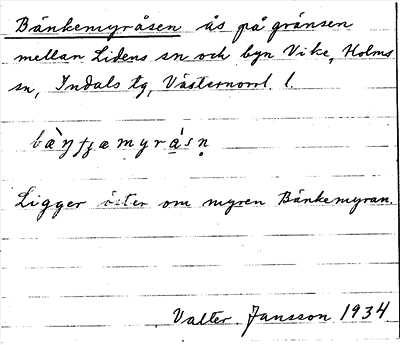 Bänkemyråsen ås på gränsen
mellan Lidens sn och byn Vike, Holms
sn, Indals tg, Västernorrl. l.
Ligger öster om myren Bänkemyran.
Valter Jansson 1934